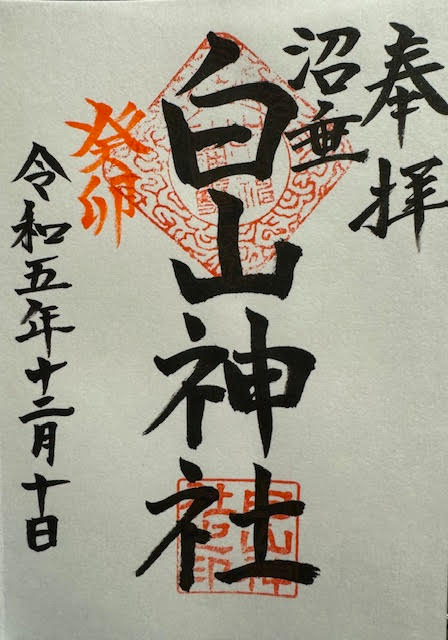 奉拝
沼垂
白山神社
癸卯
令和五年十二月十日
白山神
社之印